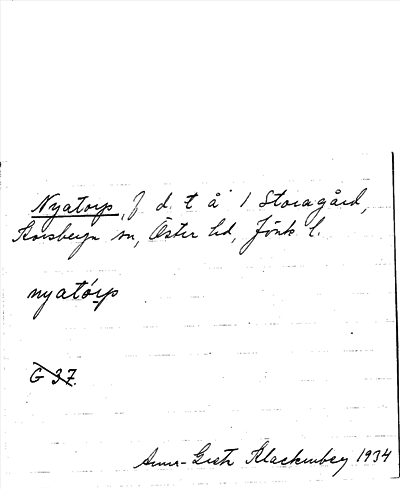 Nyatorp, f d. t å 1 Storagård,
Korsberga sn, Östra hd, Jönk l.
nyatórp
G 37.
Anna-Greta Klackenberg 1934